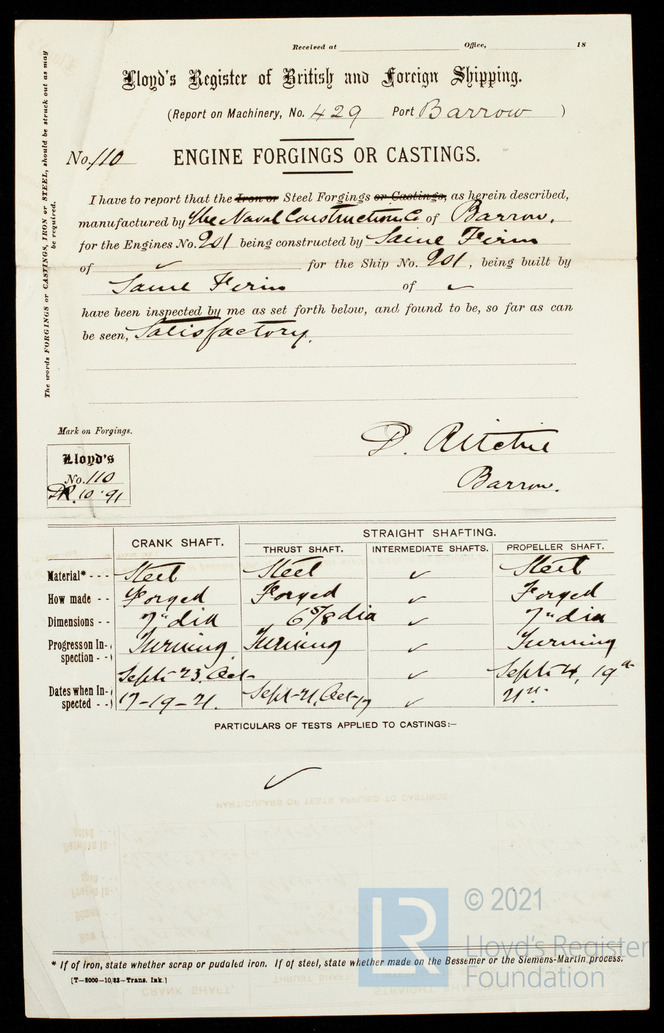 Received at Office, 18
Lloyd's Register of British and Foreign Shipping.
(Report on Machinery, No. 429 Port Barrow )
No. 110 ENGINE FORGINGS OR CASTINGS.
The words FORGINGS or CASTINGS, IRON or STEEL, should be struck out as may
be required.
I have to report that the Iron or Steel Forgings or Castings, as herein described,
manufactured by The Naval Construction Co of Barrow,
for the Engines No. 201 being constructed by Same Firm
of ✓ for the Ship No. 201, being built by
Same Firm of ✓
have been inspected by me as set forth below, and found to be, so far as can
be seen, Satisfactory.
Mark on Forgings.
Lloyd's
No. 110
DR. 10 '91
D. Ritchie
Barrow.
CRANK SHAFT. STRAIGHT SHAFTING.
THRUST SHAFT. INTERMEDIATE SHAFTS. PROPELLER SHAFT.
Material* - - - Steel Steel ✓ Steel
How made - - Forged Forged ✓ Forged
Dimensions - - 7" dia 6 5/8 dia ✓ 7" dia
Progress on In-
spection - - Turning Turning ✓ Turning
Dates when In-
spected - - Sept 23, Oct
17-19-21. Sept-21, Oct-17 ✓ Sept 4, 19th
21st
PARTICULARS OF TESTS APPLIED TO CASTINGS:–
✓
© 2021
LR
Lloyd's Register
Foundation
* If of iron, state whether scrap or puddled iron. If of steel, state whether made on the Bessemer or the Siemens-Martin process.
[T—5000—10/83—Trans. Ink.]